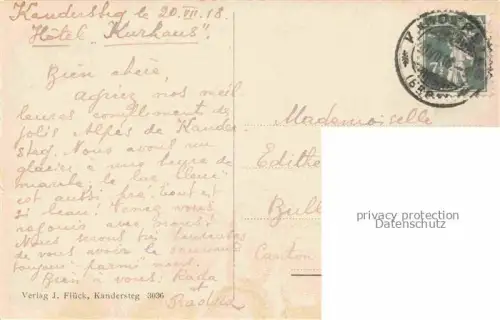 Kandersteg le 20.VII.18.
Hôtel "Kurhaus".
Bien chère,
Agréez nos meil
leures compliments de
jolis Alpes de Kander
steg. Nous avons vu
glacier à une heure de
marche, le lac bleu
est aussi près. Tout est
si beau! Venez vous
avec nous!
Nous serons très contentes
de vous avoir
toujours parmi nous.
Bien à vous: Rada
et
Radka
Mademoiselle
Edithe
Bull
Canton
KANDER
privacy protection
Datenschutz
Verlag J. Flück, Kandersteg 3036